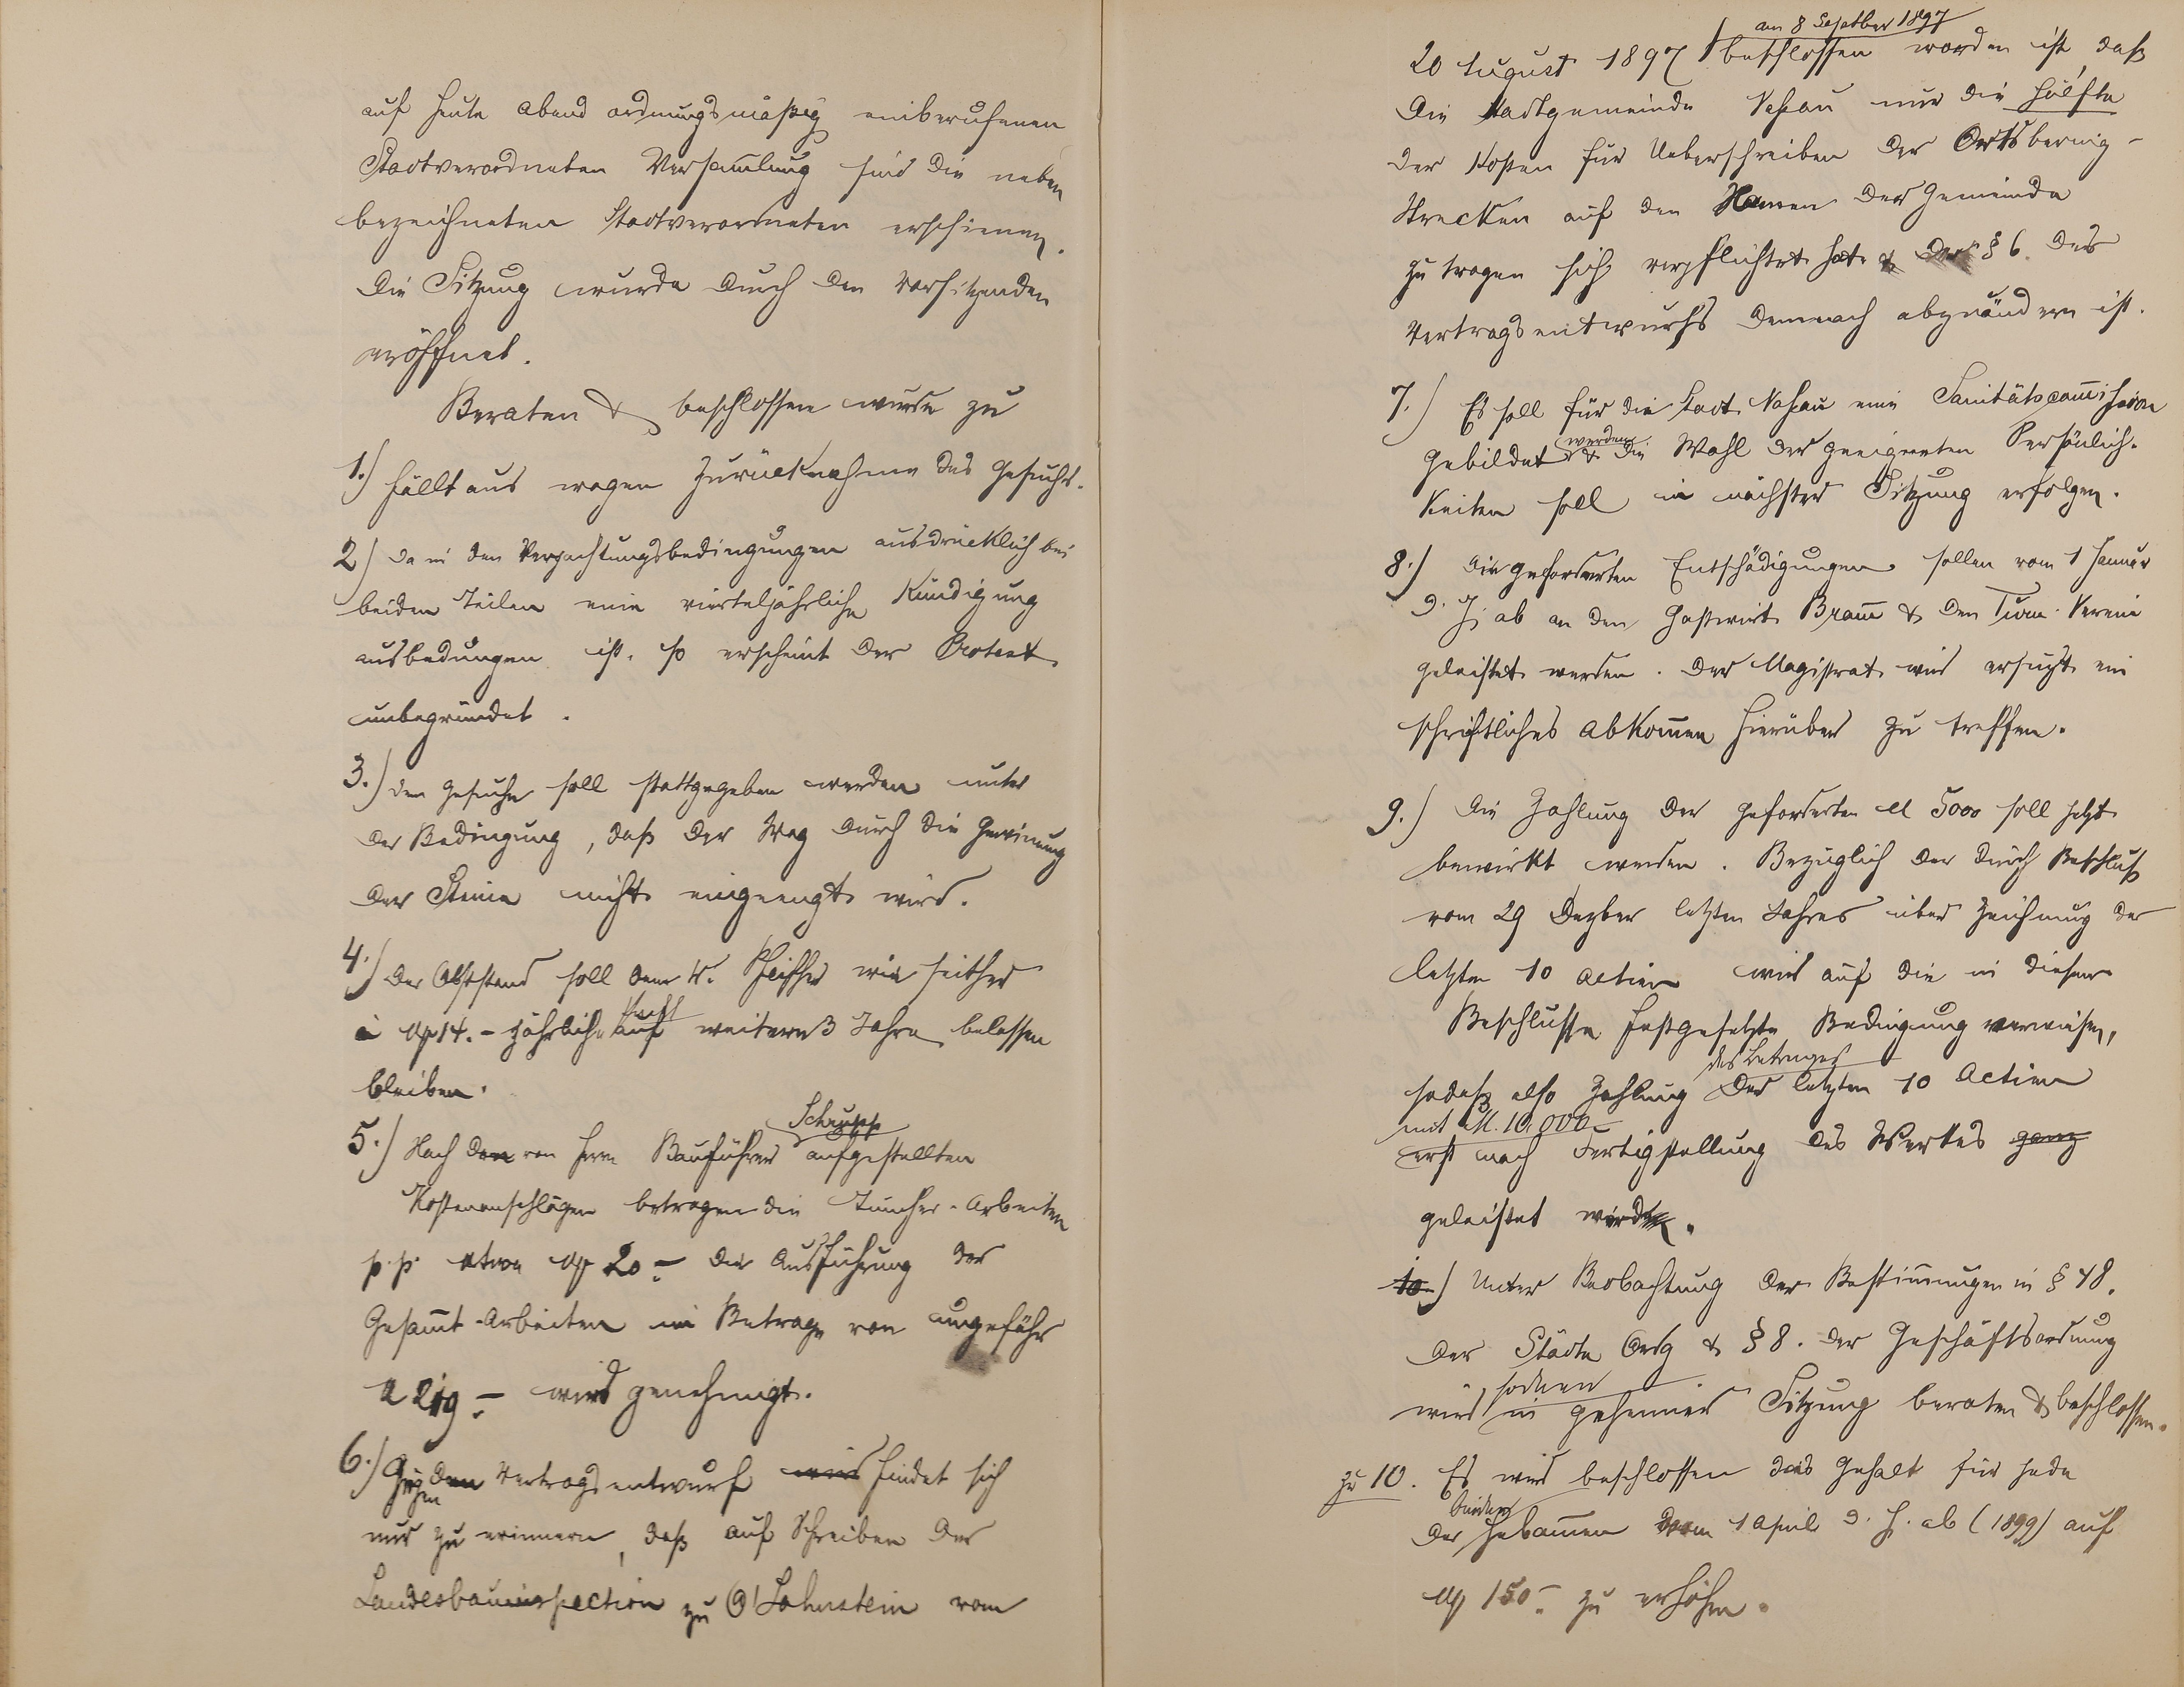 auf heute Abend ordnungsmäßig einberufenen
Stadtverordneten Versam̄lung sind die neben
bezeichneten Stadtverordneten erschienen.
Die Sitzung wurde durch den Vorsitzenden
eröffnet.
Beraten & beschlossen wurde zu
1.) fällt aus wegen Zurücknahme des Gesuchs.
2) Da in den Verpachtungsbedingungen ausdrücklich bei
beiden Teilen eine vierteljährliche Kündigung
ausbedungen ist, so erscheint der Protest
unbegründet.
3.) Dem Gesuche soll stattgegeben werden unter
der Bedingung, daß der Weg durch die Gewinnung
der Steine nicht eingeengt wird.
4.) Der Obststand soll dem W. Pfeiffer wie seither
à M 14.- jährliche Pacht auf weitere 3 Jahre belassen
bleiben.
5.) Nach den von Herrn Bauführer Schrupp aufgestellten
Kostenanschlägen betragen die Tüncher-Arbeiten
p.p. etwa M 20.- Die Ausführung der
Gesam̄t-Arbeiten im Betrage von ungefähr
M 219.- wird genehmigt.
6.) Gegen den Vertragsentwurf wird findet sich
nur zu erinnern, daß auf Schreiben der
Landesbauinspection zu O/Lahnstein vom
20 August 1897 am 8 Septber 1897 beschlossen worden ist, daß
die Stadtgemeinde Nassau nur die Hälfte
der Kosten für Ueberschreiben der Ortsbering-
strecken auf den Namen der Gemeinde
zu tragen sich verpflichtet hat & der § 6 des
Vertragsentwurfs demnach abzuändern ist.
7.) Es soll für die Stadt Nassau eine Sanitätscom̄ission
gebildet werden & die Wahl der geeigneten Persönlich-
keiten soll in nächster Sitzung erfolgen.
8.) Die geforderten Entschädigungen sollen vom 1 Januar
d. J. ab an den Gastwirt Bram̄ & den Turn-Verein
geleistet werden. Der Magistrat wird ersucht ein
schriftliches Abkom̄en hierüber zu treffen.
9.) Die Zahlung der geforderten M 5000 soll jetzt
bewirkt werden. Bezüglich der durch Beschluß
vom 29 Dezber letzten Jahres über Zeichnung der
letzten 10 Actien wird auf die in diesem
Beschlusse festgesetzte Bedingung verwiesen,
sodaß also Zahlung des Betrages der letzten 10 Actien
mit M. 10,000
erst nach Fertigstellung des Werkes ganz
geleistet wird.
10.) Unter Beobachtung der Bestim̄ungen in § 48.
der Städte Ordg & § 8. der Geschäftsordnung
wird sodann in geheimer Sitzung beraten & beschlossen.
zu 10. Es wird beschlossen das Gehalt für jede
der beiden Hebam̄en vom 1 April d. J. ab (1899) auf
M 150.- zu erhöhen.